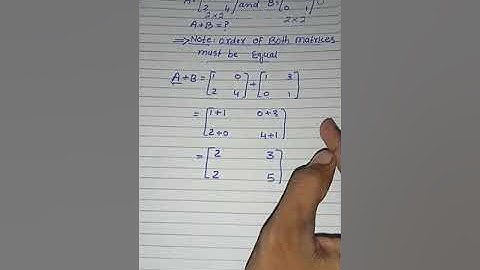 A= [2 4] and B= [0 1]
2×2 2×2
A+B = ?
⇒ Note: order of Both matrices
must be Equal
A+B = [1 0 + [1 3
2 4] 0 1]
= [1+1 0+3
2+0 4+1]
= [2 3
2 5]